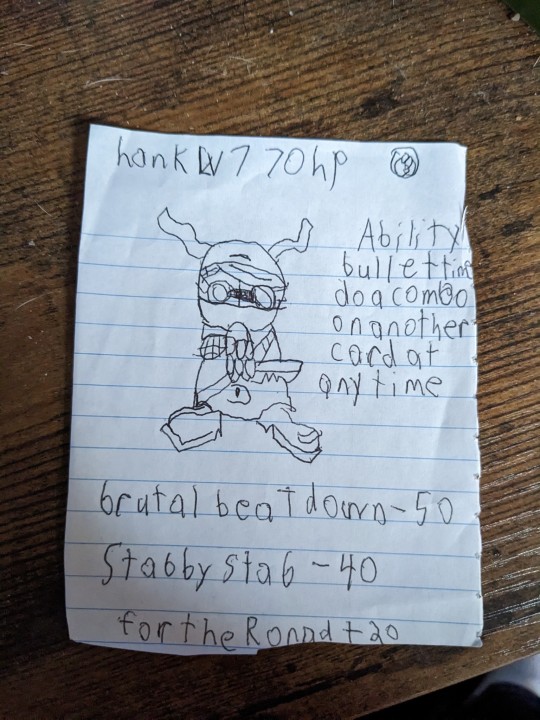 hank W7 70hp
Ability
bullettime
do a combo
on another
card at
any time
brutal beatdown-50
Stabby stab-40
for the Ronnd+20